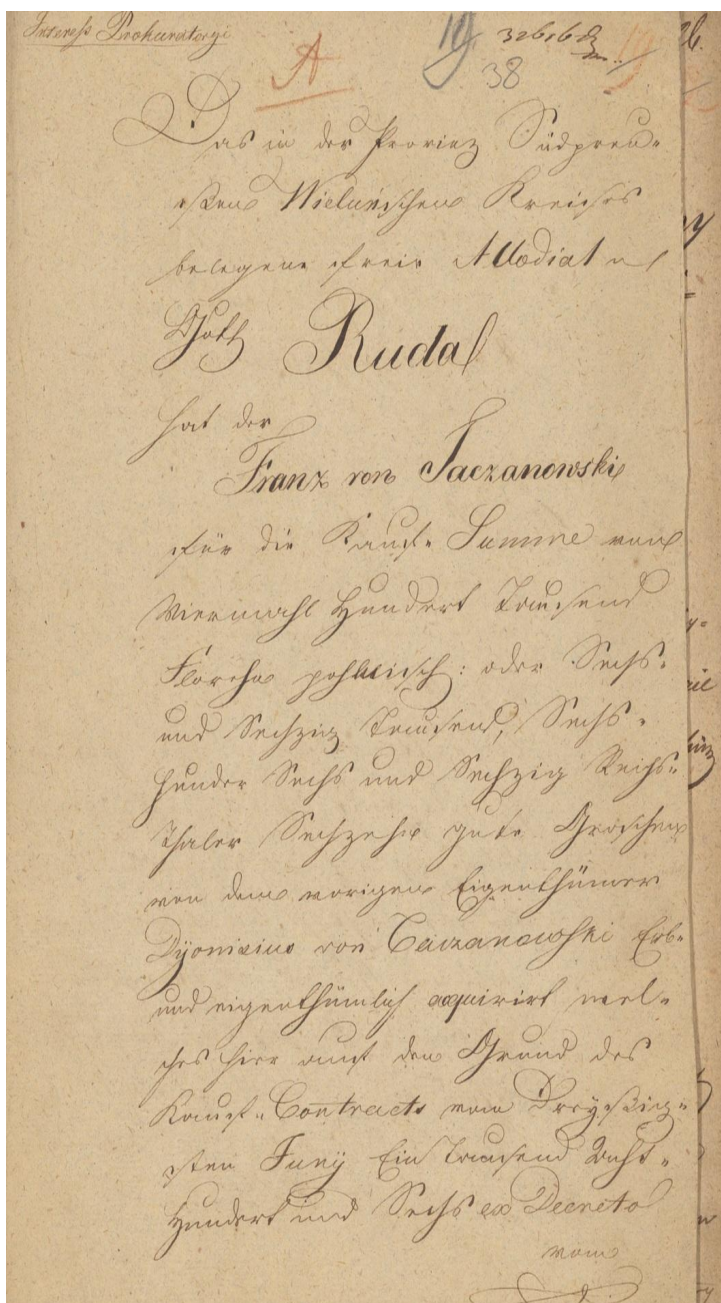 Interess Prokuratoryi
A 19 32616
38
Das in der Provinz Südpreu-
ßen Wielunschen Kreises
belegene freie Allodial
Guth Ruda
hat der
Franz von Taczanowski
für die Kauf-Summe von
Viermahl Hundert Tausend
Floren pohlnisch: oder Sechs-
und Sechzig Tausend, Sechs-
Hunder Sechs und Sechzig Reichs-
Thaler Sechzehn gute Groschen
von dem vorigen Eigenthümer
Dyonisius von Taczanowski Erb-
und eigenthümlich acquirirt wel-
ches hier auf den Grund des
Kauf-Contracts vom Dreyßig-
sten Juny Ein Tausend Acht-
Hundert und Sechs ex Decreto
vom